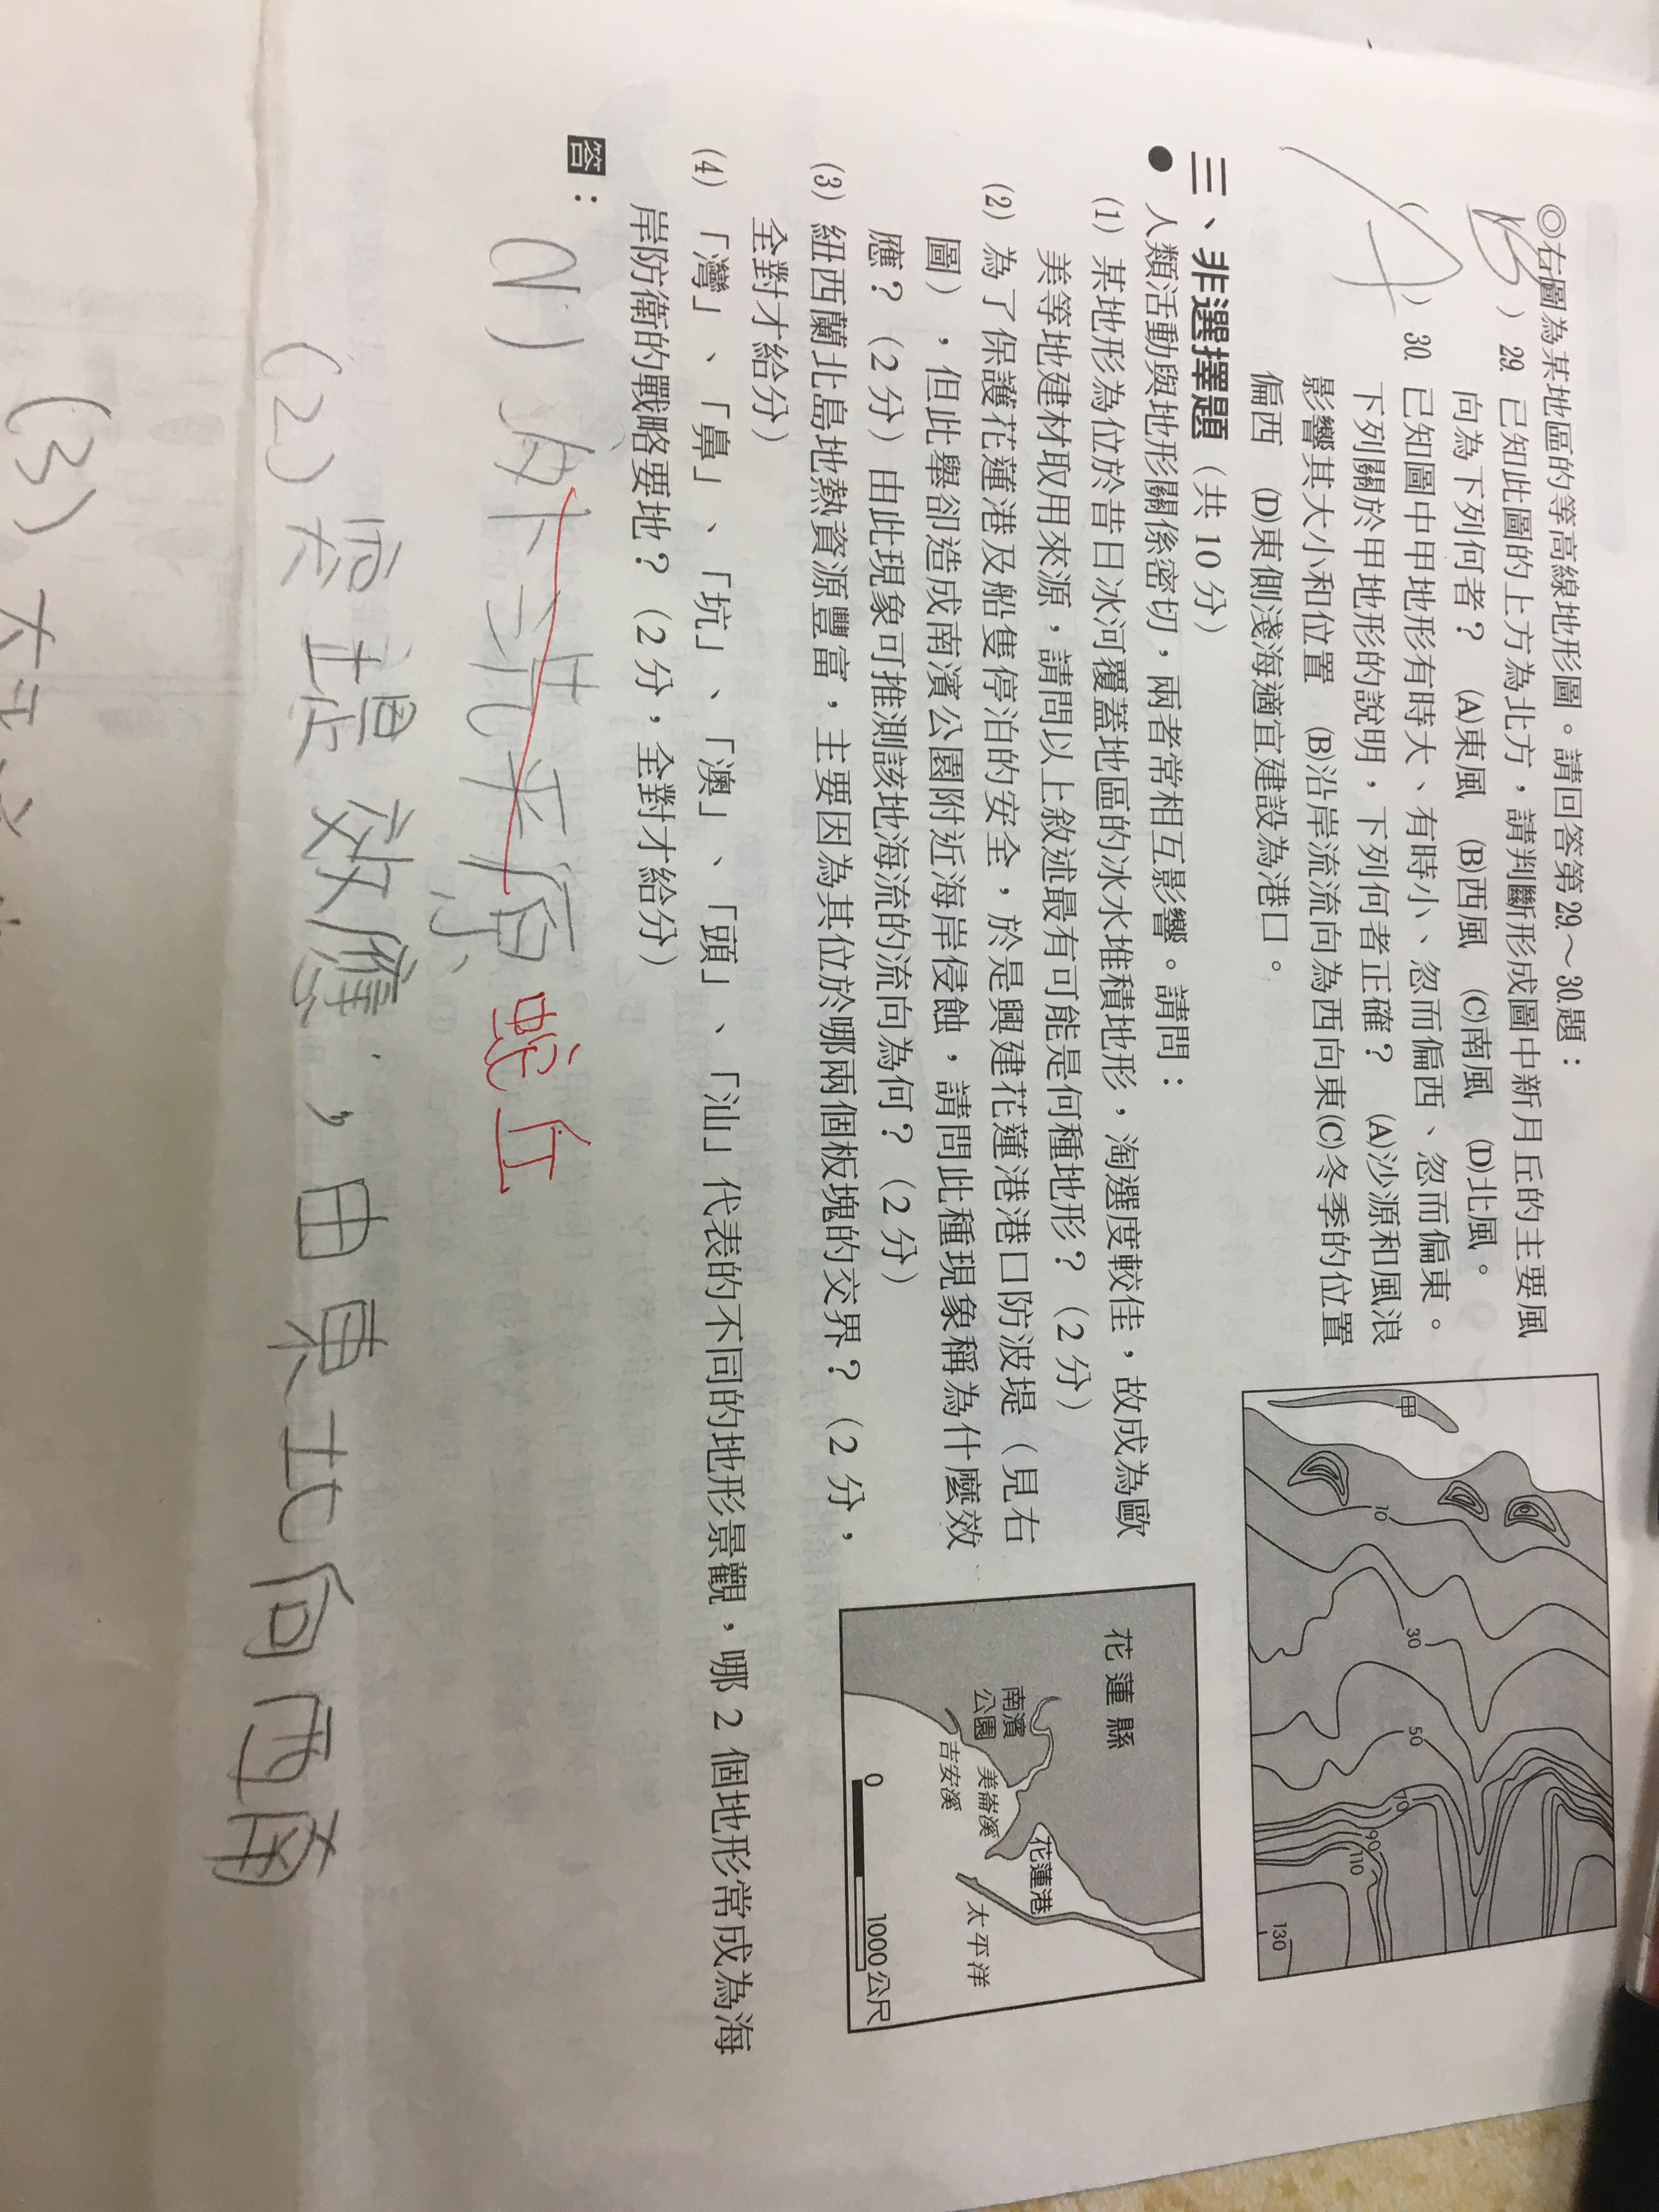 ◎右圖為某地區的等高線地形圖。請回答第29.～30.題：
（B）29. 已知此圖的上方為北方，請判斷形成圖中新月丘的主要風
向為下列何者？ (A)東風 (B)西風 (C)南風 (D)北風。
（A）30. 已知圖中甲地形有時大、有時小、忽而偏西、忽而偏東。
下列關於甲地形的說明，下列何者正確？ (A)沙源和風浪
影響其大小和位置 (B)沿岸流流向為西向東(C)冬季的位置
偏西 (D)東側淺海適宜建設為港口。
甲
10
30
50
70
90
110
130
三、非選擇題（共 10 分）
● 人類活動與地形關係密切，兩者常相互影響。請問：
(1) 某地形為位於昔日冰河覆蓋地區的冰水堆積地形，淘選度較佳，故成為歐
美等地建材取用來源，請問以上敘述最有可能是何種地形？（2 分）
(2) 為了保護花蓮港及船隻停泊的安全，於是興建花蓮港港口防波堤（見右
圖），但此舉卻造成南濱公園附近海岸侵蝕，請問此種現象稱為什麼效
應？（2 分）由此現象可推測該地海流的流向為何？（2 分）
(3) 紐西蘭北島地熱資源豐富，主要因為其位於哪兩個板塊的交界？（2 分，
全對才給分）
(4) 「灣」、「鼻」、「坑」、「澳」、「頭」、「汕」代表的不同的地形景觀，哪 2 個地形常成為海
岸防衛的戰略要地？（2 分，全對才給分）
花蓮縣
南濱
公園
美崙溪
吉安溪
花蓮港
太平洋
0
1000公尺
答：
(1) 外洗平原 蛇丘
(2) 突堤效應，由東北向西南
(3) 太平洋